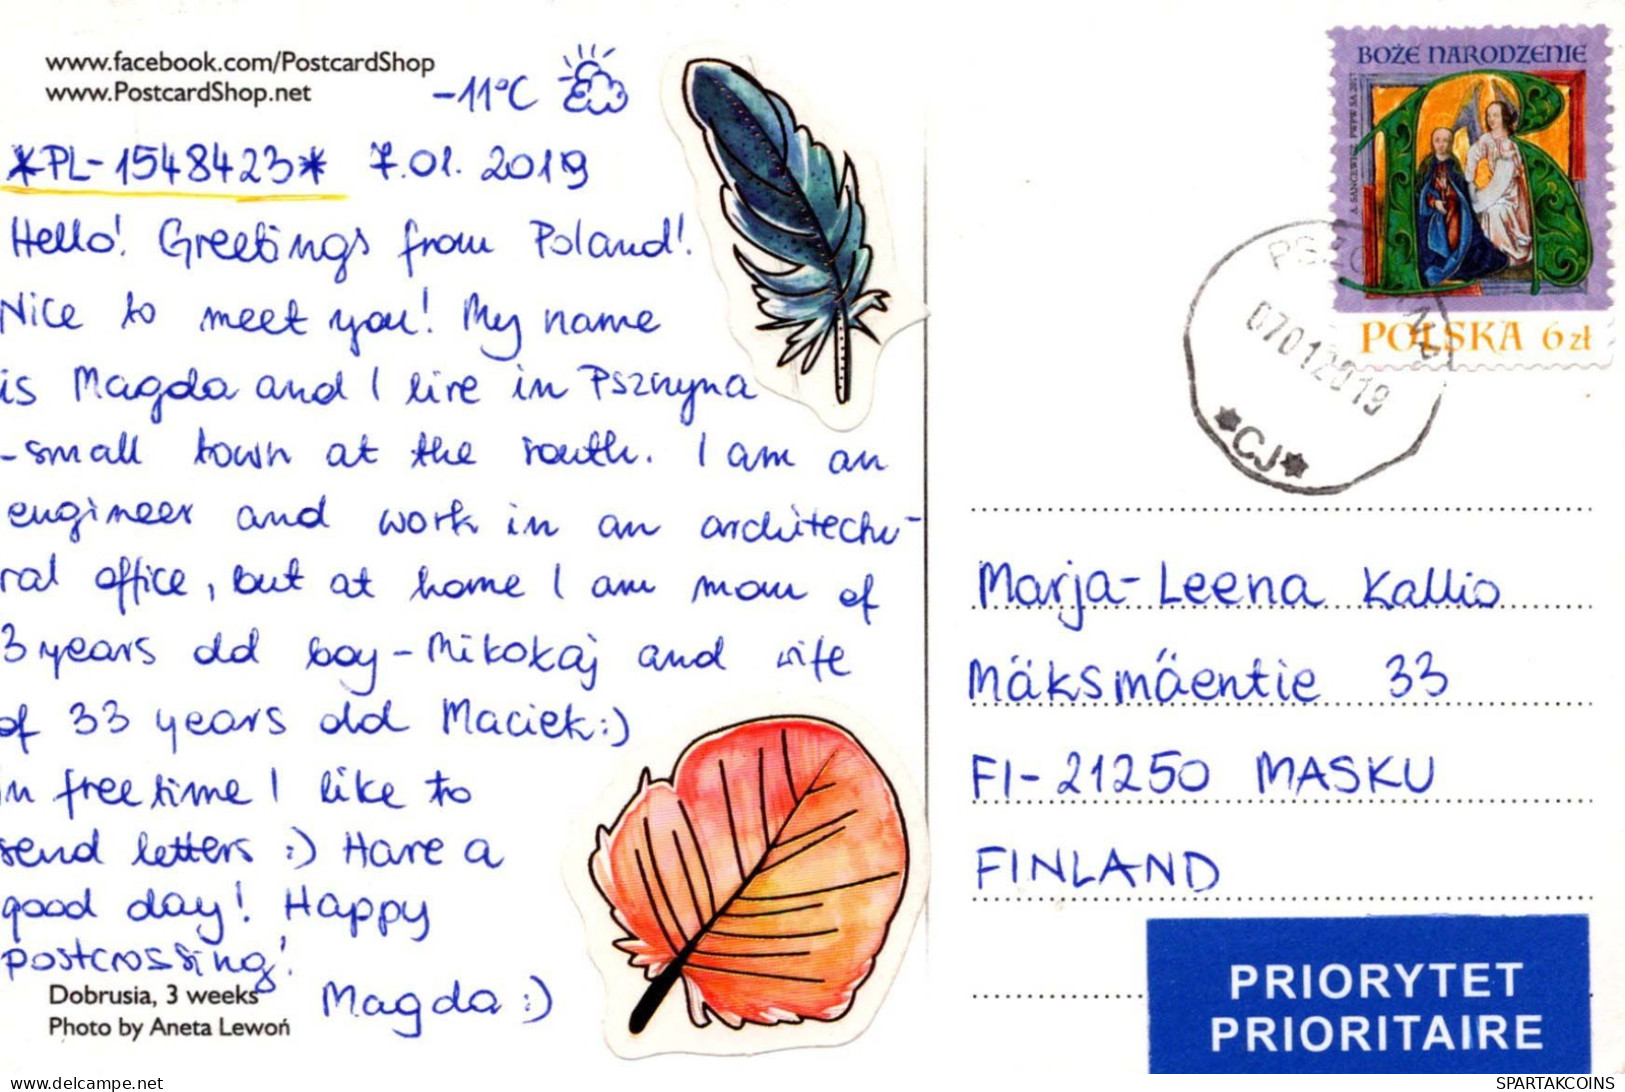 www.facebook.com/PostcardShop
www.PostcardShop.net
-11°C
*PL-1548423* 7.01.2019
Hello! Greetings from Poland!
Nice to meet you! My name
is Magda and I live in Pszczyna
-small town at the south. I am an
engineer and work in an architectu-
ral office, but at home I am mom of
3 years old boy - Mikołaj and wife
of 33 years old Maciek :)
in free time I like to
send letters :) Have a
good day! Happy
postcrossing!
Magda :)
Dobrusia, 3 weeks
Photo by Aneta Lewoń
BOŻE NARODZENIE
A. SANCEWICZ PWPW SA 2017
POLSKA 6 zł
07012019
*CJ*
Marja-Leena Kallio
Mäksmäentie 33
FI-21250 MASKU
FINLAND
PRIORYTET
PRIORITAIRE
www.delcampe.net
SPARTAKCOINS